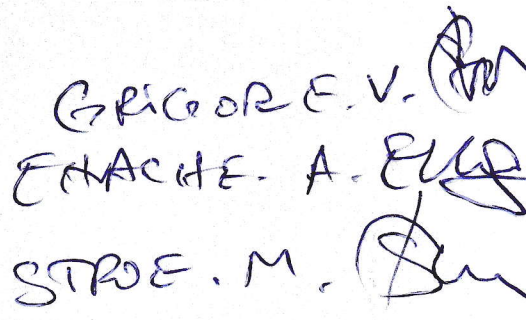 GRIGORE. V.
ENACHE. A.
STROE. M.